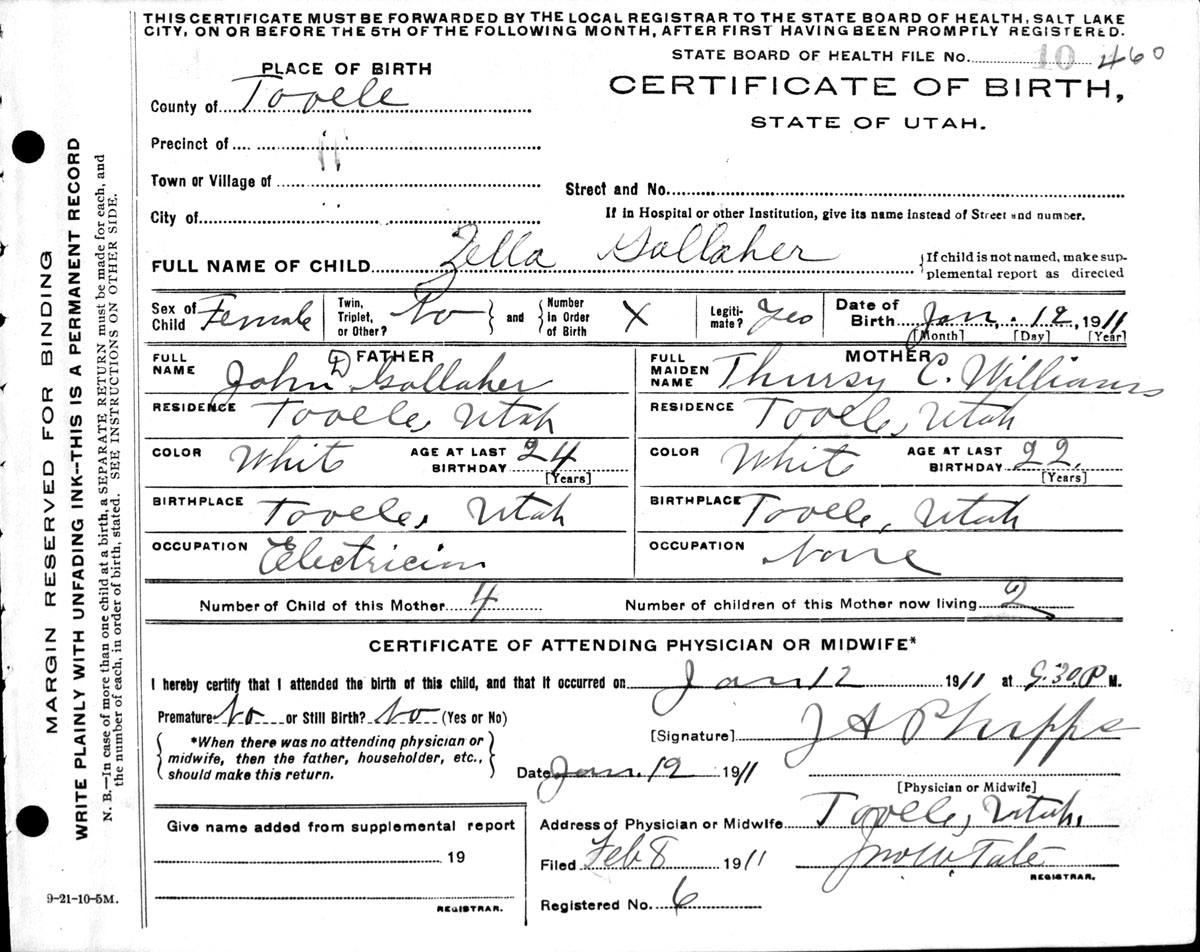 THIS CERTIFICATE MUST BE FORWARDED BY THE LOCAL REGISTRAR TO THE STATE BOARD OF HEALTH, SALT LAKE
CITY, ON OR BEFORE THE 5TH OF THE FOLLOWING MONTH, AFTER FIRST HAVING BEEN PROMPTLY REGISTERED.
STATE BOARD OF HEALTH FILE No. 10 460
PLACE OF BIRTH
CERTIFICATE OF BIRTH,
STATE OF UTAH.
County of Tooele
Precinct of "
Town or Village of
Street and No.
City of "
If in Hospital or other Institution, give its name instead of Street and number.
FULL NAME OF CHILD Zella Gollaher
{If child is not named, make sup-
plemental report as directed
Sex of Child Female Twin, Triplet, or Other? No } and { Number in Order of Birth X Legiti-mate? Yes Date of Birth Jan. 12, 1911
[Month] [Day] [Year]
FATHER
FULL NAME John D Gollaher
MOTHER
FULL MAIDEN NAME Thursy C. Williams
RESIDENCE Tooele, Utah
RESIDENCE Tooele, Utah
COLOR White AGE AT LAST BIRTHDAY 24 [Years]
COLOR White AGE AT LAST BIRTHDAY 22 [Years]
BIRTHPLACE Tooele, Utah
BIRTHPLACE Tooele, Utah
OCCUPATION Electrician
OCCUPATION None
Number of Child of this Mother 4 Number of children of this Mother now living 2
CERTIFICATE OF ATTENDING PHYSICIAN OR MIDWIFE*
I hereby certify that I attended the birth of this child, and that it occurred on Jan 12 1911 at 9:30 P M.
Premature No or Still Birth? No (Yes or No)
*When there was no attending physician or
midwife, then the father, householder, etc.,
should make this return.
[Signature] J A Phipps
Date Jan. 12 1911
[Physician or Midwife]
Give name added from supplemental report
19
REGISTRAR.
Address of Physician or Midwife Tooele, Utah.
Filed Feb 8 1911 Jno W Tate
REGISTRAR.
Registered No. 6
9-21-10-5M.
MARGIN RESERVED FOR BINDING
WRITE PLAINLY WITH UNFADING INK--THIS IS A PERMANENT RECORD
N. B.—In case of more than one child at a birth, a SEPARATE RETURN must be made for each, and
the number of each, in order of birth, stated. SEE INSTRUCTIONS ON OTHER SIDE.